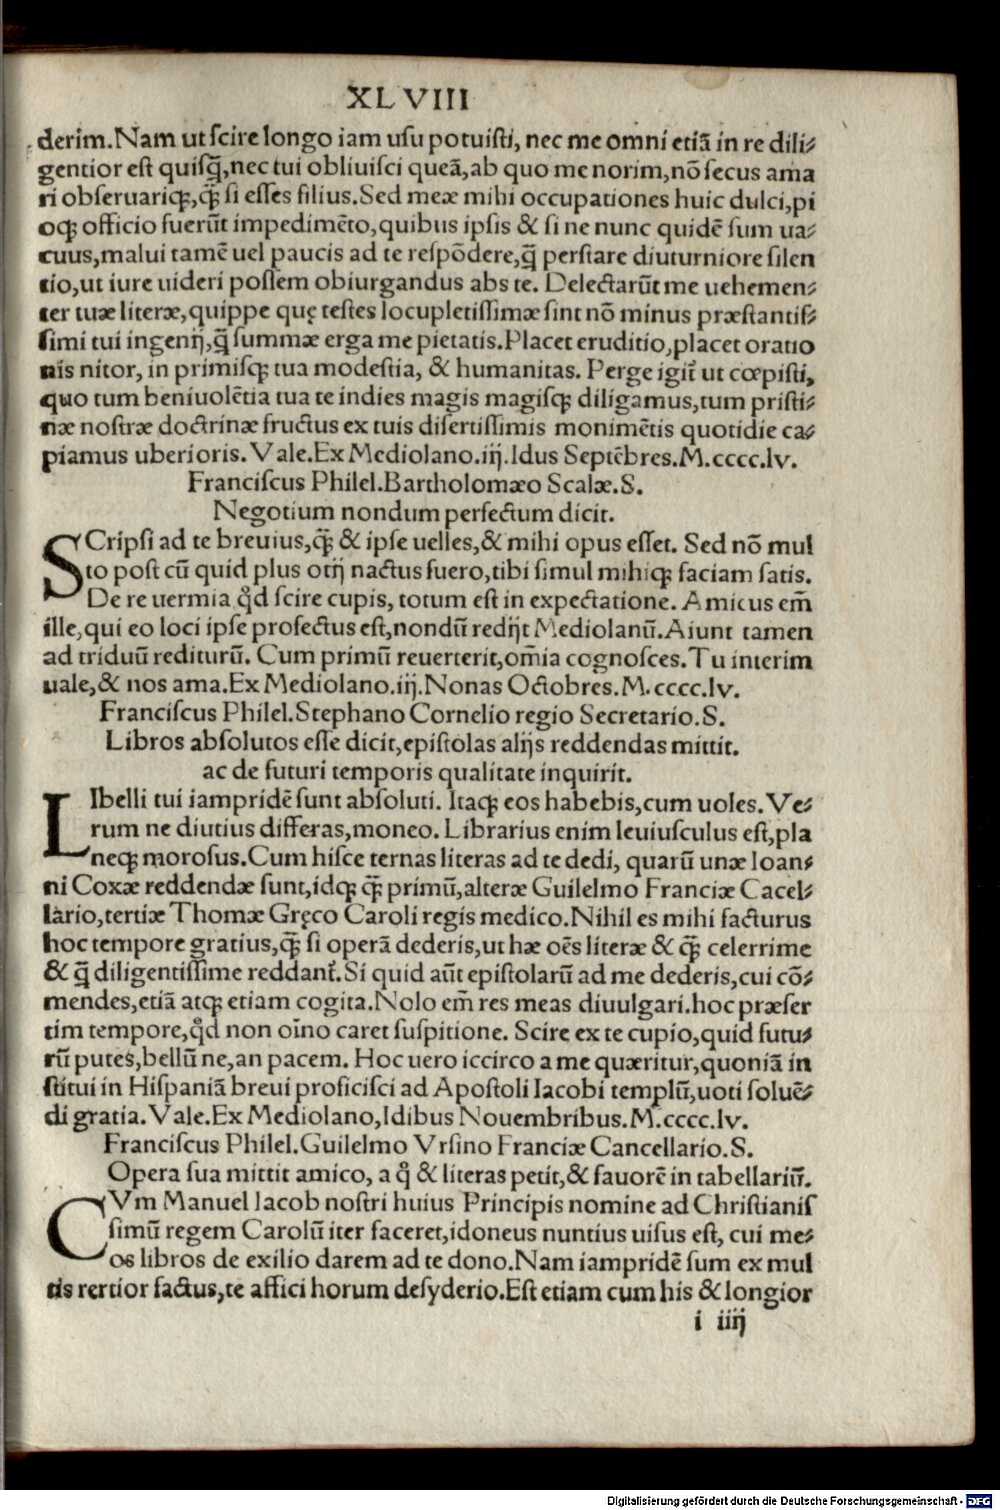 XLVIII
derim.Nam ut scire longo iam usu potuisti, nec me omni etiã in re dili⸗
gentior est quisq̃,nec tui obliuisci queã,ab quo me norim,nõ secus ama
ri obseruariq;,q̃ si esses filius.Sed meæ mihi occupationes huic dulci,pi
oq; officio fuerũt impedimẽto,quibus ipsis & si ne nunc quidẽ sum ua⸗
cuus,malui tamẽ uel paucis ad te respõdere,q̃ perstare diuturniore silen
tio,ut iure uideri possem obiurgandus abs te. Delectarũt me uehemen⸗
ter tuæ literæ,quippe quę testes locupletissimæ sint nõ minus præstantis⸗
simi tui ingenij,q̃ summæ erga me pietatis.Placet eruditio,placet oratio
nis nitor, in primisq; tua modestia, & humanitas. Perge igit̃ ut cœpisti,
quo tum beniuolẽtia tua te indies magis magisq; diligamus,tum pristi⸗
næ nostræ doctrinæ fructus ex tuis disertissimis monimẽtis quotidie ca⸗
piamus uberioris. Vale.Ex Mediolano.iij.Idus Septẽbres.M.cccc.lv.
Franciscus Philel.Bartholomæo Scalæ.S.
Negotium nondum perfectum dicit.
SCripsi ad te breuius,q̃ & ipse uelles,& mihi opus esset. Sed nõ mul
to post cũ quid plus otij nactus fuero,tibi simul mihiq; faciam satis.
De re uermia qd̃ scire cupis, totum est in expectatione. Amicus em̃
ille,qui eo loci ipse profectus est,nondũ redijt Mediolanũ.Aiunt tamen
ad triduũ rediturũ. Cum primũ reuerterit,om̃ia cognosces.Tu interim
uale,& nos ama.Ex Mediolano.iij.Nonas Octobres.M.cccc.lv.
Franciscus Philel.Stephano Cornelio regio Secretario.S.
Libros absolutos esse dicit,epistolas alijs reddendas mittit.
ac de futuri temporis qualitate inquirit.
LIbelli tui iampridẽ sunt absoluti. Itaq; eos habebis,cum uoles.Ve⸗
rum ne diutius differas,moneo. Librarius enim leuiusculus est,pla
neq; morosus.Cum hisce ternas literas ad te dedi, quarũ unæ Ioan⸗
ni Coxæ reddendæ sunt,idq; q̃ primũ,alteræ Guilelmo Franciæ Cacel⸗
lario,tertiæ Thomæ Gręco Caroli regis medico.Nihil es mihi facturus
hoc tempore gratius,q̃ si operã dederis,ut hæ oẽs literæ & q̃ celerrime
& q̃ diligentissime reddant̃.Si quid aũt epistolarũ ad me dederis,cui cõ⸗
mendes,etiã atq; etiam cogita.Nolo em̃ res meas diuulgari.hoc præser
tim tempore,qd̃ non oĩno caret suspitione. Scire ex te cupio,quid futu⸗
rũ putes,bellũ ne,an pacem. Hoc uero iccirco a me quæritur,quoniã in
stitui in Hispaniã breui proficisci ad Apostoli Iacobi templũ,uoti soluẽ⸗
di gratia.Vale.Ex Mediolano,Idibus Nouembribus.M.cccc.lv.
Franciscus Philel.Guilelmo Vrsino Franciæ Cancellario.S.
Opera sua mittit amico, a q̊ & literas petit,& fauorẽ in tabellariũ.
CVm Manuel Iacob nostri huius Principis nomine ad Christianis
simũ regem Carolũ iter faceret,idoneus nuntius uisus est, cui me⸗
os libros de exilio darem ad te dono.Nam iampridẽ sum ex mul
tis rertior factus,te affici horum desyderio.Est etiam cum his & longior
i iiij
Digitalisierung gefördert durch die Deutsche Forschungsgemeinschaft - DFG